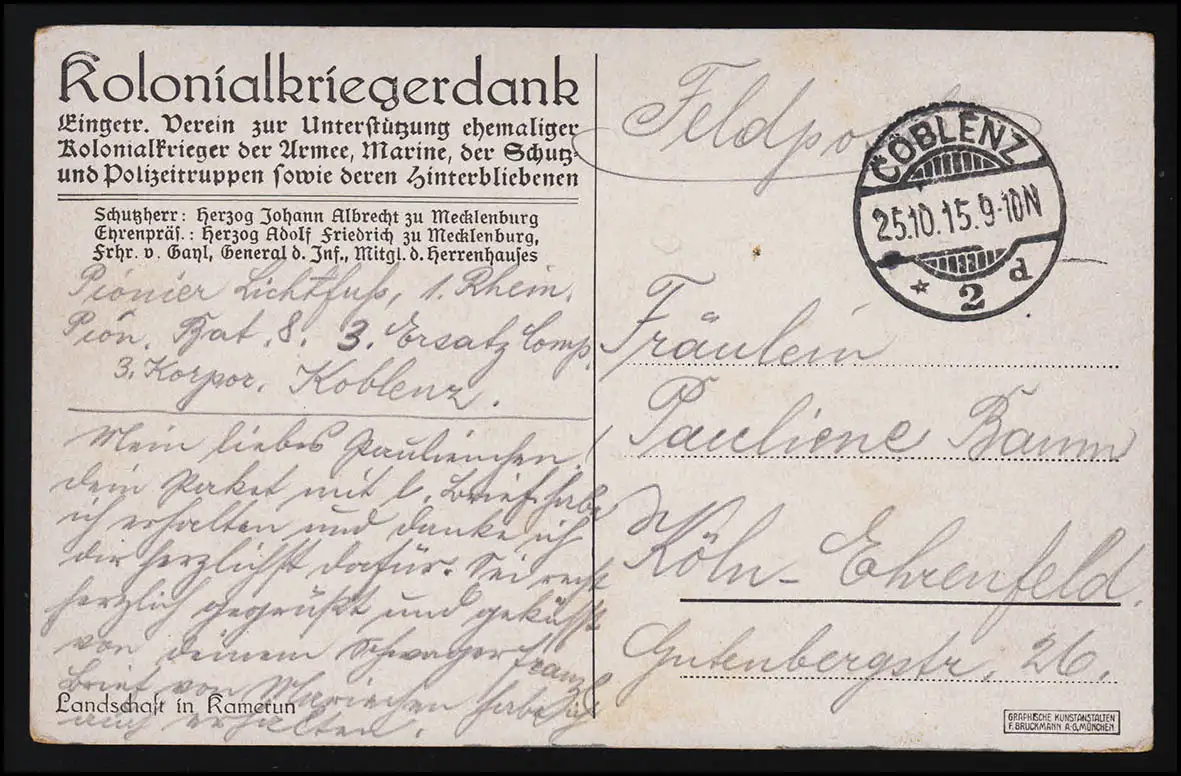 Kolonialkriegerdank
Eingetr. Verein zur Unterstützung ehemaliger
Kolonialkrieger der Armee, Marine, der Schutz-
und Polizeitruppen sowie deren Hinterbliebenen
Schutzherr: Herzog Johann Albrecht zu Mecklenburg
Ehrenpräs.: Herzog Adolf Friedrich zu Mecklenburg,
Frhr. v. Gayl, General d. Inf., Mitgl. d. Herrenhauses
Pionier Lichtfuss, 1. Rhein.
Pion. Bat. 8. 3. Ersatz Comp.
3. Korpor. Koblenz.
Mein liebes Paulienchen!
dein Paket mit l. Brief habe
ich erhalten und danke ich
dir herzlichst dafür. Sei recht
herzlich gegrüßt und geküsst
von deinem Schwager Franz
Brief von Mariechen habe ich
auch erhalten.
Landschaft in Kamerun
Feldpo
COBLENZ
25.10.15.9-10N
* 2 d
Fräulein
Pauliene Baum
Köln-Ehrenfeld.
Gutenbergstr. 26.
GRAPHISCHE KUNSTANSTALTEN
F. BRUCKMANN A.-G. MÜNCHEN